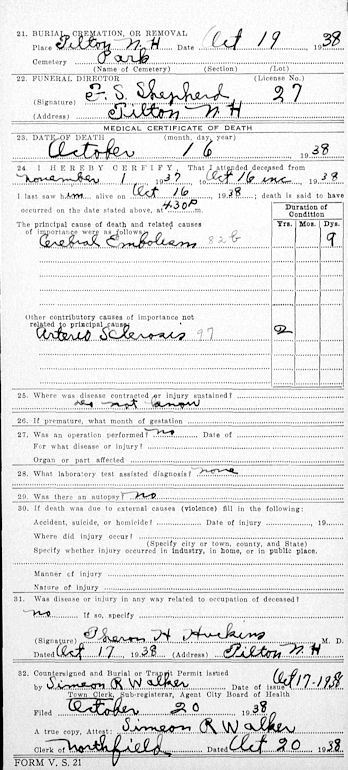 21. BURIAL, CREMATION, OR REMOVAL
Place Tilton N H Date Oct 19 1938
Cemetery Park
(Name of Cemetery) (Section) (Lot)
22. FUNERAL DIRECTOR (License No.)
(Signature) F. S. Shepherd 27
(Address) Tilton N H
MEDICAL CERTIFICATE OF DEATH
23. DATE OF DEATH (month, day, year)
October 16 1938
24 I HEREBY CERTIFY, That I attended deceased from
november 1 1937 to Oct 16 inc 1938
I last saw him alive on Oct 16, 1938; death is said to have
occurred on the date stated above, at 4.30 P m.
Duration of Condition
The principal cause of death and related causes of importance were as follows Yrs. Mos. Dys.
Cerebral Embolism 82b 9
Other contributory causes of importance not related to principal cause
Arterio Sclerosis 97 2
25. Where was disease contracted or injury sustained?
do not know
26. If premature, what month of gestation
27. Was an operation performed? no Date of
For what disease or injury?
Organ or part affected
28. What laboratory test assisted diagnosis? none
29. Was there an autopsy? no
30. If death was due to external causes (violence) fill in the following:
Accident, suicide, or homicide? Date of injury 19
Where did injury occur?
(Specify city or town, county, and State)
Specify whether injury occurred in industry, in home, or in public place.
Manner of injury
Nature of injury
31. Was disease or injury in any way related to occupation of deceased?
no If so, specify
(Signature) Theron H Huckins M. D.
Dated Oct 17, 1938 (Address) Tilton N.H
32. Countersigned and Burial or Transit Permit issued
by Simeon R Walker Date of issue Oct 17-1938
Town Clerk, Sub-registrar, Agent City Board of Health
Filed October 20 1938
A true copy, Attest: Simeon R Walker
Clerk of Northfield Dated Oct 20 1938
FORM V. S. 21